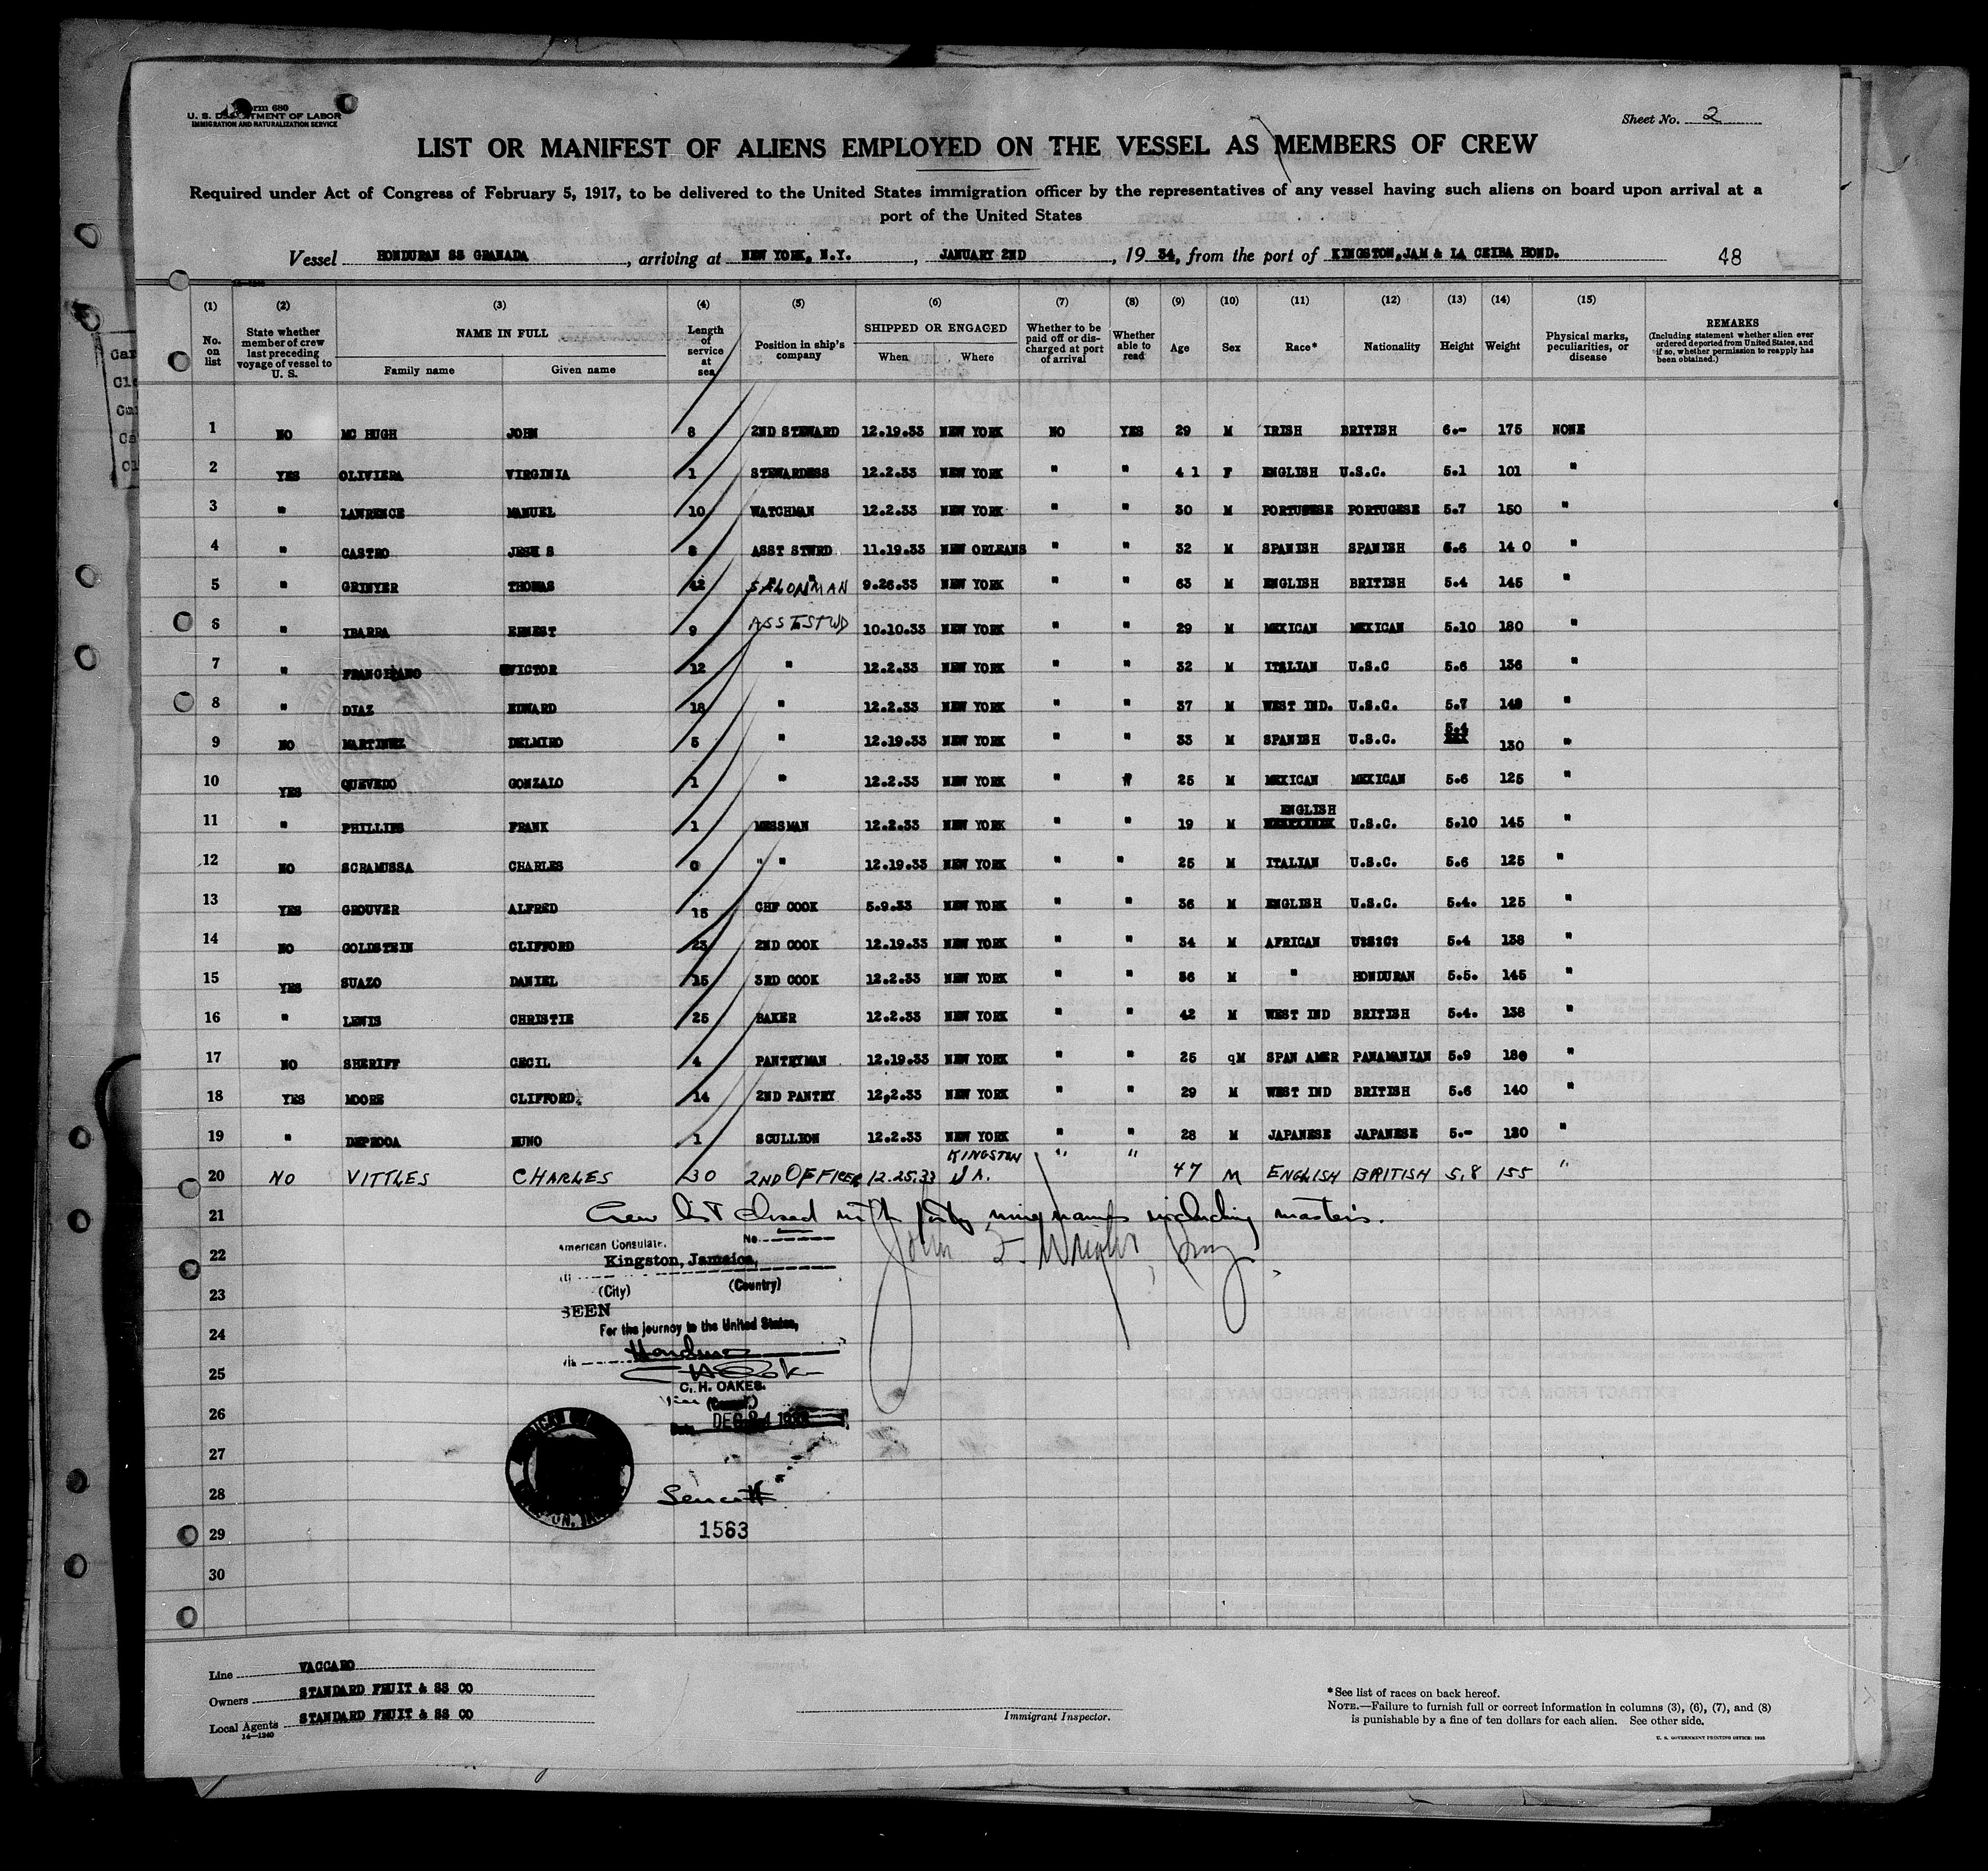 Form 680
U. S. DEPARTMENT OF LABOR
IMMIGRATION AND NATURALIZATION SERVICE
Sheet No. 2
LIST OR MANIFEST OF ALIENS EMPLOYED ON THE VESSEL AS MEMBERS OF CREW
Required under Act of Congress of February 5, 1917, to be delivered to the United States immigration officer by the representatives of any vessel having such aliens on board upon arrival at a
port of the United States
Vessel HONDURAN SS GRANADA, arriving at NEW YORK, N.Y., JANUARY 2ND, 1934, from the port of KINGSTON,JAM & LA CEIBA HOND. 48
(1) (2) (3) (4) (5) (6) (7) (8) (9) (10) (11) (12) (13) (14) (15)
No. on list State whether member of crew last preceding voyage of vessel to U. S. NAME IN FULL Family name Given name Length of service at sea Position in ship's company SHIPPED OR ENGAGED When Where Whether to be paid off or discharged at port of arrival Whether able to read Age Sex Race* Nationality Height Weight Physical marks, peculiarities, or disease REMARKS (Including statement whether alien ever ordered deported from United States, and if so, whether permission to reapply has been obtained.)
1 NO MC HUGH JOHN 8 2ND STEWARD 12.19.33 NEW YORK NO YES 29 M IRISH BRITISH 6.- 175 NONE
2 YES OLIVIERA VIRGINIA 1 STEWARDESS 12.2.33 NEW YORK " " 4 1 F ENGLISH U.S.C. 5.1 101 "
3 " LAWRENCE MANUEL 10 WATCHMAN 12.2.33 NEW YORK " " 30 M PORTUGESE PORTUGESE 5.7 150 "
4 " CASTRO JESU S 8 ASST STWRD 11.19.33 NEW ORLEANS " " 32 M SPANISH SPANISH 5.6 14 0 "
5 " GRINYER THOMAS 42 SALONMAN 9.26.33 NEW YORK " " 63 M ENGLISH BRITISH 5.4 145 "
6 " IBARRA ERNEST 9 ASST STWD 10.10.33 NEW YORK " " 29 M MEXICAN MEXICAN 5.10 180 "
7 " VICTOR 12 " 12.2.33 NEW YORK " " 32 M ITALIAN U.S.C 5.6 136 "
8 " DIAZ EDWARD 18 " 12.2.33 NEW YORK " " 37 M WEST IND. U.S.C. 5.7 "
9 NO MARTINEZ DELMIRO 5 " 12.19.33 NEW YORK " " 33 M SPANISH U.S.C. 5.4 130 "
10 YES QUEVEDO GONZALO 1 " 12.2.33 NEW YORK " " 25 M MEXICAN MEXICAN 5.6 125 "
11 " PHILLIPS FRANK 1 MESSMAN 12.2.33 NEW YORK " " 19 M ENGLISH U.S.C. 5.10 145 "
12 NO SCRAMUSSA CHARLES 0 " " 12.19.33 NEW YORK " " 25 M ITALIAN U.S.C. 5.6 125 "
13 YES GROUVER ALFRED 15 CHF COOK 5.9.33 NEW YORK " " 36 M ENGLISH U.S.C. 5.4. 125 "
14 NO GOLDSTEIN CLIFFORD 23 2ND COOK 12.19.33 NEW YORK " " 34 M AFRICAN U.S.C. 5.4 138 "
15 YES SUAZO DANIEL 15 3RD COOK 12.2.33 NEW YORK " " 36 M " HONDURAN 5.5. 145 "
16 " LEWIS CHRISTIE 25 BAKER 12.2.33 NEW YORK " " 42 M WEST IND BRITISH 5.4. 138 "
17 NO SHERIFF CECIL 4 PANTRYMAN 12.19.33 NEW YORK " " 25 qM SPAN AMER PANAMANIAN 5.9 180 "
18 YES MOORE CLIFFORD. 14 2ND PANTRY 12,2.33 NEW YORK " " 29 M WEST IND BRITISH 5.6 140 "
19 " 1 SCULLION 12.2.33 NEW YORK " " 28 M JAPANESE JAPANESE 5.- 130 "
20 NO VITTLES CHARLES 30 2ND OFFICER 12.25.33 KINGSTON JA. " " 47 M ENGLISH BRITISH 5.8 155 "
21 Crew list closed with forty nine names including masters.
22 American Consulate, No.
Kingston, Jamaica,
23 (City) (Country)
SEEN
24 For the journey to the United States,
via Honduras
25
C. H. OAKES.
Vice (Consul.)
26 Date DEC 24 1933
27
28
29 1563
30
Line VACCARO
Owners STANDARD FRUIT & SS CO
Local Agents STANDARD FRUIT & SS CO
14—1240
Immigrant Inspector.
*See list of races on back hereof.
NOTE.—Failure to furnish full or correct information in columns (3), (6), (7), and (8)
is punishable by a fine of ten dollars for each alien. See other side.
U. S. GOVERNMENT PRINTING OFFICE: 1933